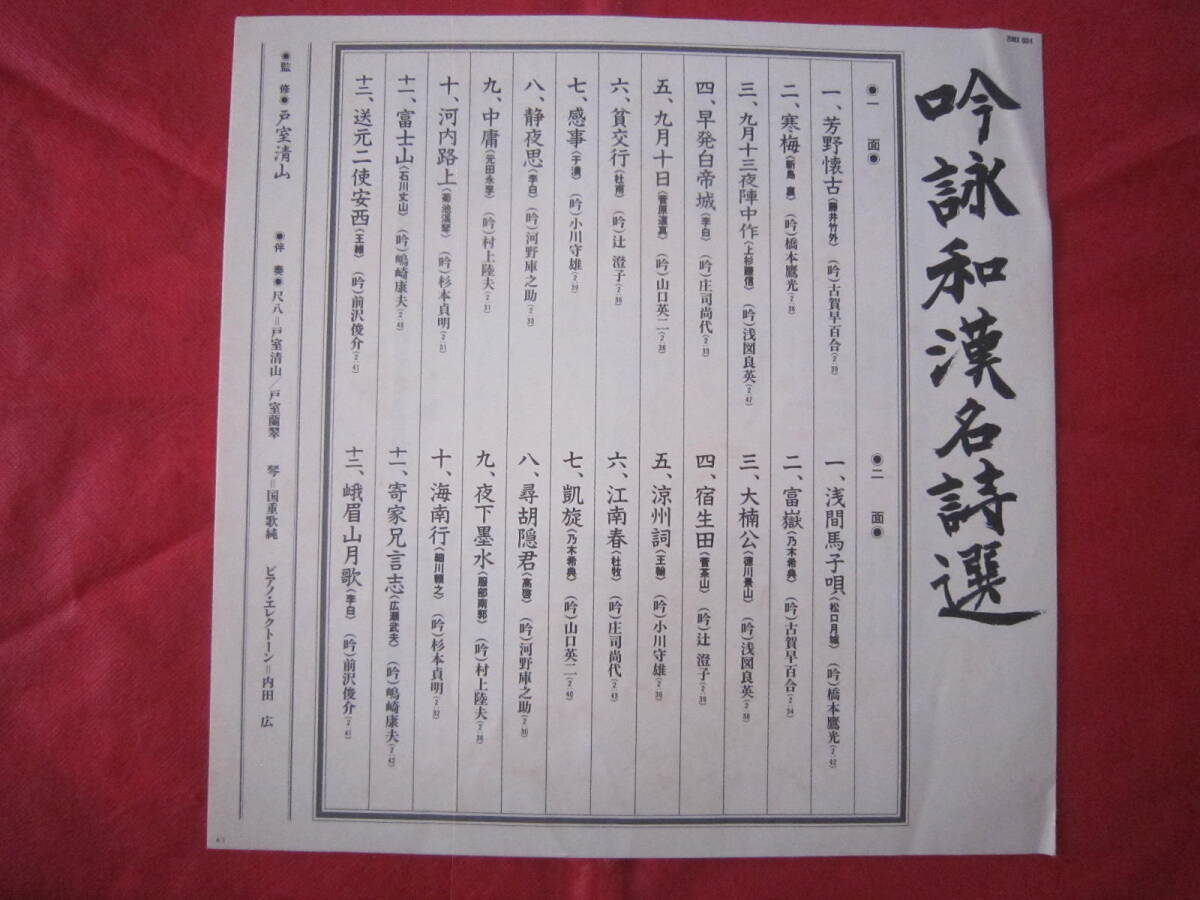 吟詠和漢名詩選
●一 面●
一、芳野懐古(藤井竹外) (吟)古賀早百合(2・39)
二、寒梅(新島 襄) (吟)橋本鷹光(2・36)
三、九月十三夜陣中作(上杉謙信) (吟)浅図良英(2・47)
四、早発白帝城(李白) (吟)庄司尚代(2・33)
五、九月十日(菅原道真) (吟)山口英二(2・36)
六、貧交行(杜甫) (吟)辻 澄子(2・36)
七、感事(于濆) (吟)小川守雄(2・30)
八、静夜思(李白) (吟)河野庫之助(2・33)
九、中庸(元田永孚) (吟)村上陸夫(2・31)
十、河内路上(菊池渓琴) (吟)杉本貞明(2・31)
十一、富士山(石川丈山) (吟)嶋崎康夫(2・48)
十二、送元二使安西(王維) (吟)前沢俊介(2・41)
●二 面●
一、浅間馬子唄(松口月城) (吟)橋本鷹光(2・42)
二、富嶽(乃木希典) (吟)古賀早百合(2・34)
三、大楠公(徳川景山) (吟)浅図良英(2・38)
四、宿生田(菅茶山) (吟)辻 澄子(2・39)
五、涼州詞(王翰) (吟)小川守雄(2・36)
六、江南春(杜牧) (吟)庄司尚代(2・43)
七、凱旋(乃木希典) (吟)山口英二(2・40)
八、尋胡隠君(高啓) (吟)河野庫之助(2・36)
九、夜下墨水(服部南郭) (吟)村上陸夫(2・36)
十、海南行(細川頼之) (吟)杉本貞明(2・32)
十一、寄家兄言志(広瀬武夫) (吟)嶋崎康夫(2・42)
十二、峨眉山月歌(李白) (吟)前沢俊介(2・41)
●監 修● 戸室清山
●伴 奏● 尺八=戸室清山/戸室蘭翠 琴=国重歌純 ピアノ・エレクトーン=内田 広